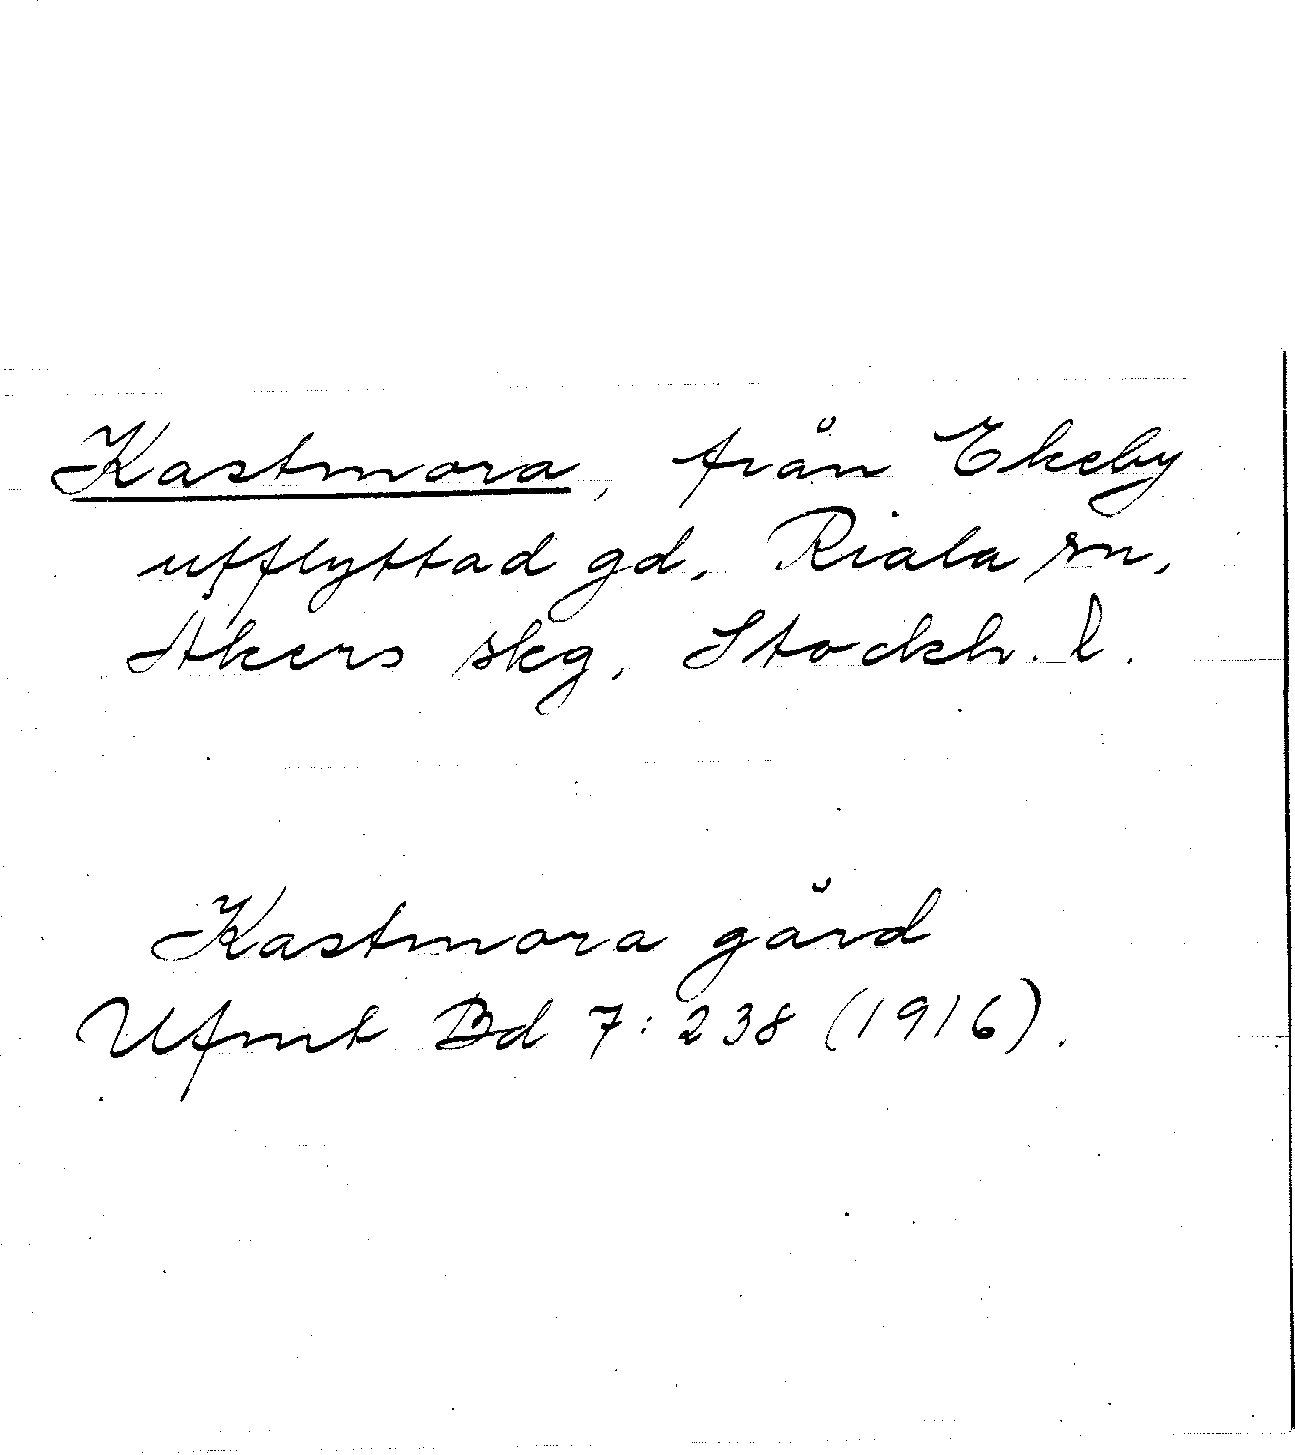 Kastmora, från Ekeby
utflyttad gd, Riala sn,
Åkers skg, Stockh. l.
Kastmora gård
Ufmt Bd 7:238 (1916).